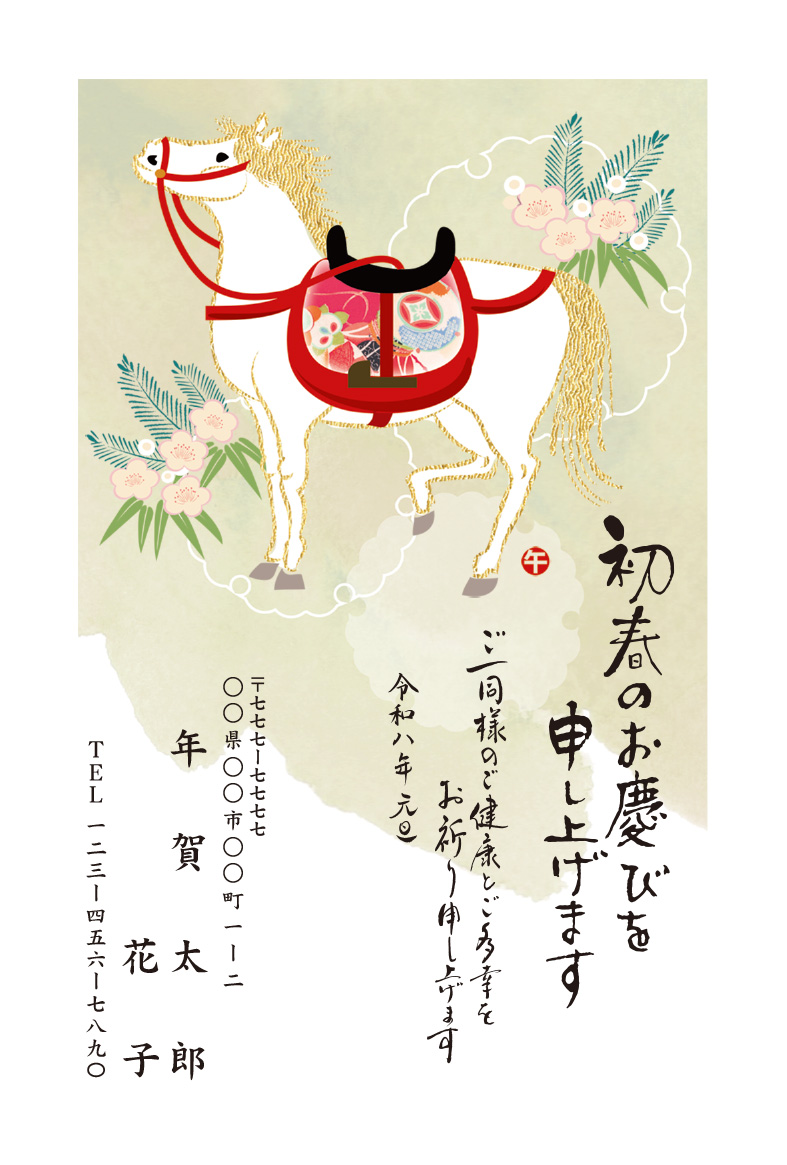 初春のお慶びを
申し上げます
ご一同様のご健康とご多幸を
お祈り申し上げます
令和八年 元旦
〒七七七ー七七七七
〇〇県〇〇市〇〇町一ー二
年賀太郎
花子
TEL 一二三ー四五六ー七八九〇
午